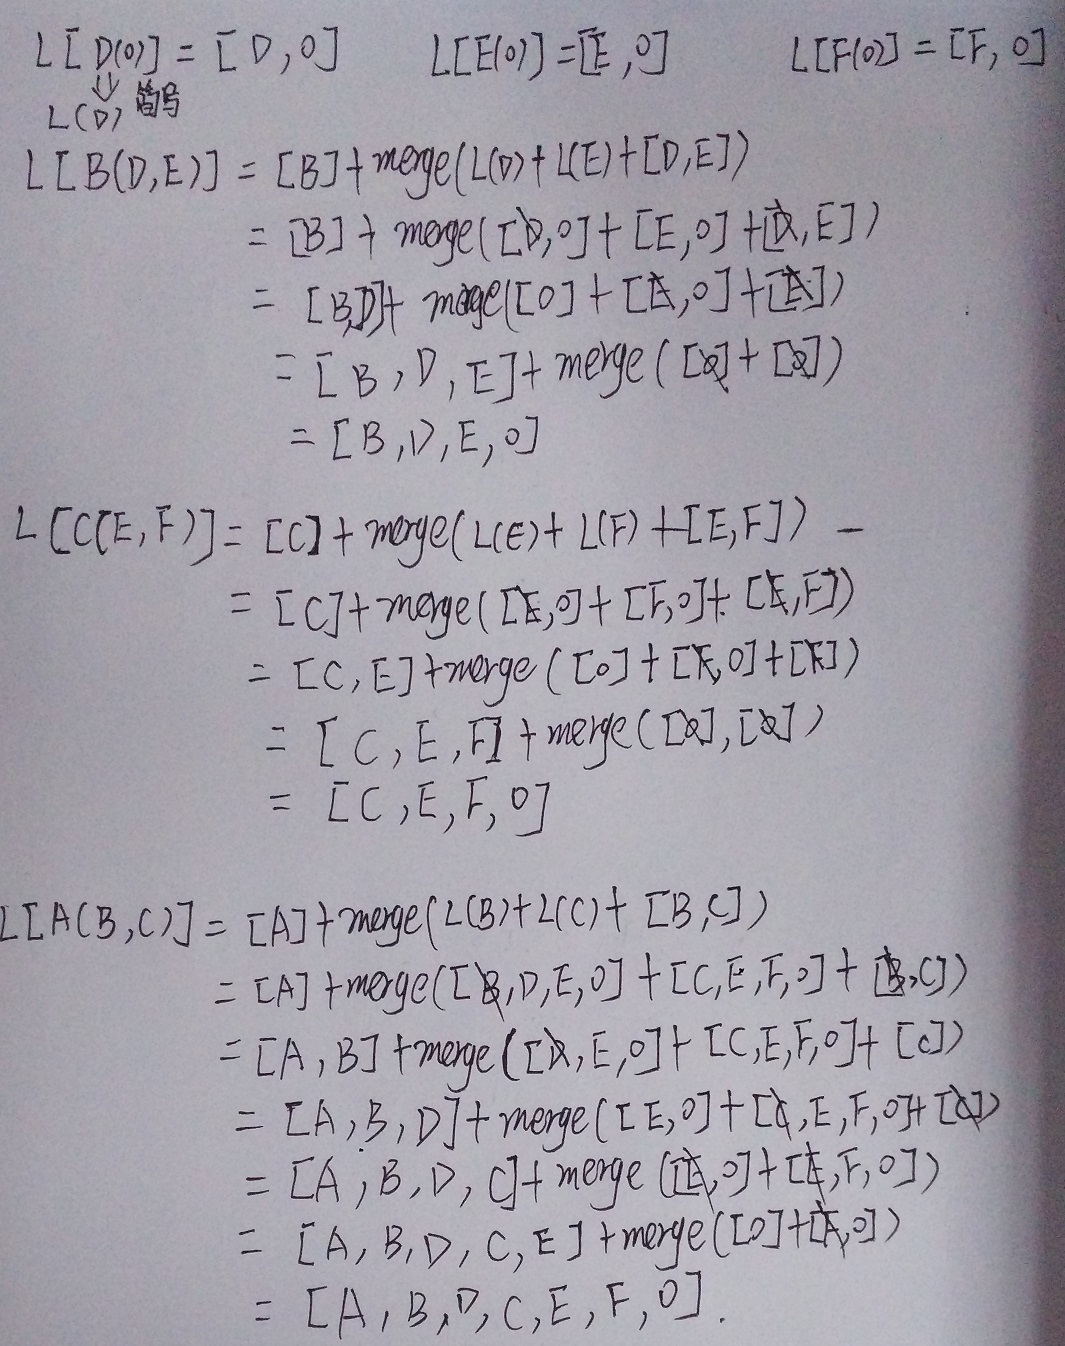 L[D(0)] = [D,0] L[E(0)]=[E,0] L[F(0)] = [F,0]
⇓
L(D) 简写
L[B(D,E)] = [B]+merge(L(D)+L(E)+[D,E])
= [B]+ merge([D,0]+[E,0]+[D,E])
= [B,D]+ merge([0]+[E,0]+[E])
= [B,D,E]+merge([0]+[0])
= [B,D,E,0]
L[C(E,F)]= [C]+merge(L(E)+L(F)+[E,F]) -
= [C]+merge([E,0]+[F,0]+[E,F])
= [C,E]+merge([0]+[F,0]+[F])
= [C,E,F]+merge([0],[0])
= [C,E,F,0]
L[A(B,C)]= [A]+merge(L(B)+L(C)+[B,C])
= [A]+merge([B,D,E,0]+[C,E,F,0]+[B,C])
= [A,B]+merge([D,E,0]+[C,E,F,0]+[C])
= [A,B,D]+merge([E,0]+[C,E,F,0]+[C])
= [A,B,D,C]+merge([E,0]+[E,F,0])
= [A,B,D,C,E]+merge([0]+[F,0])
= [A,B,D,C,E,F,0].